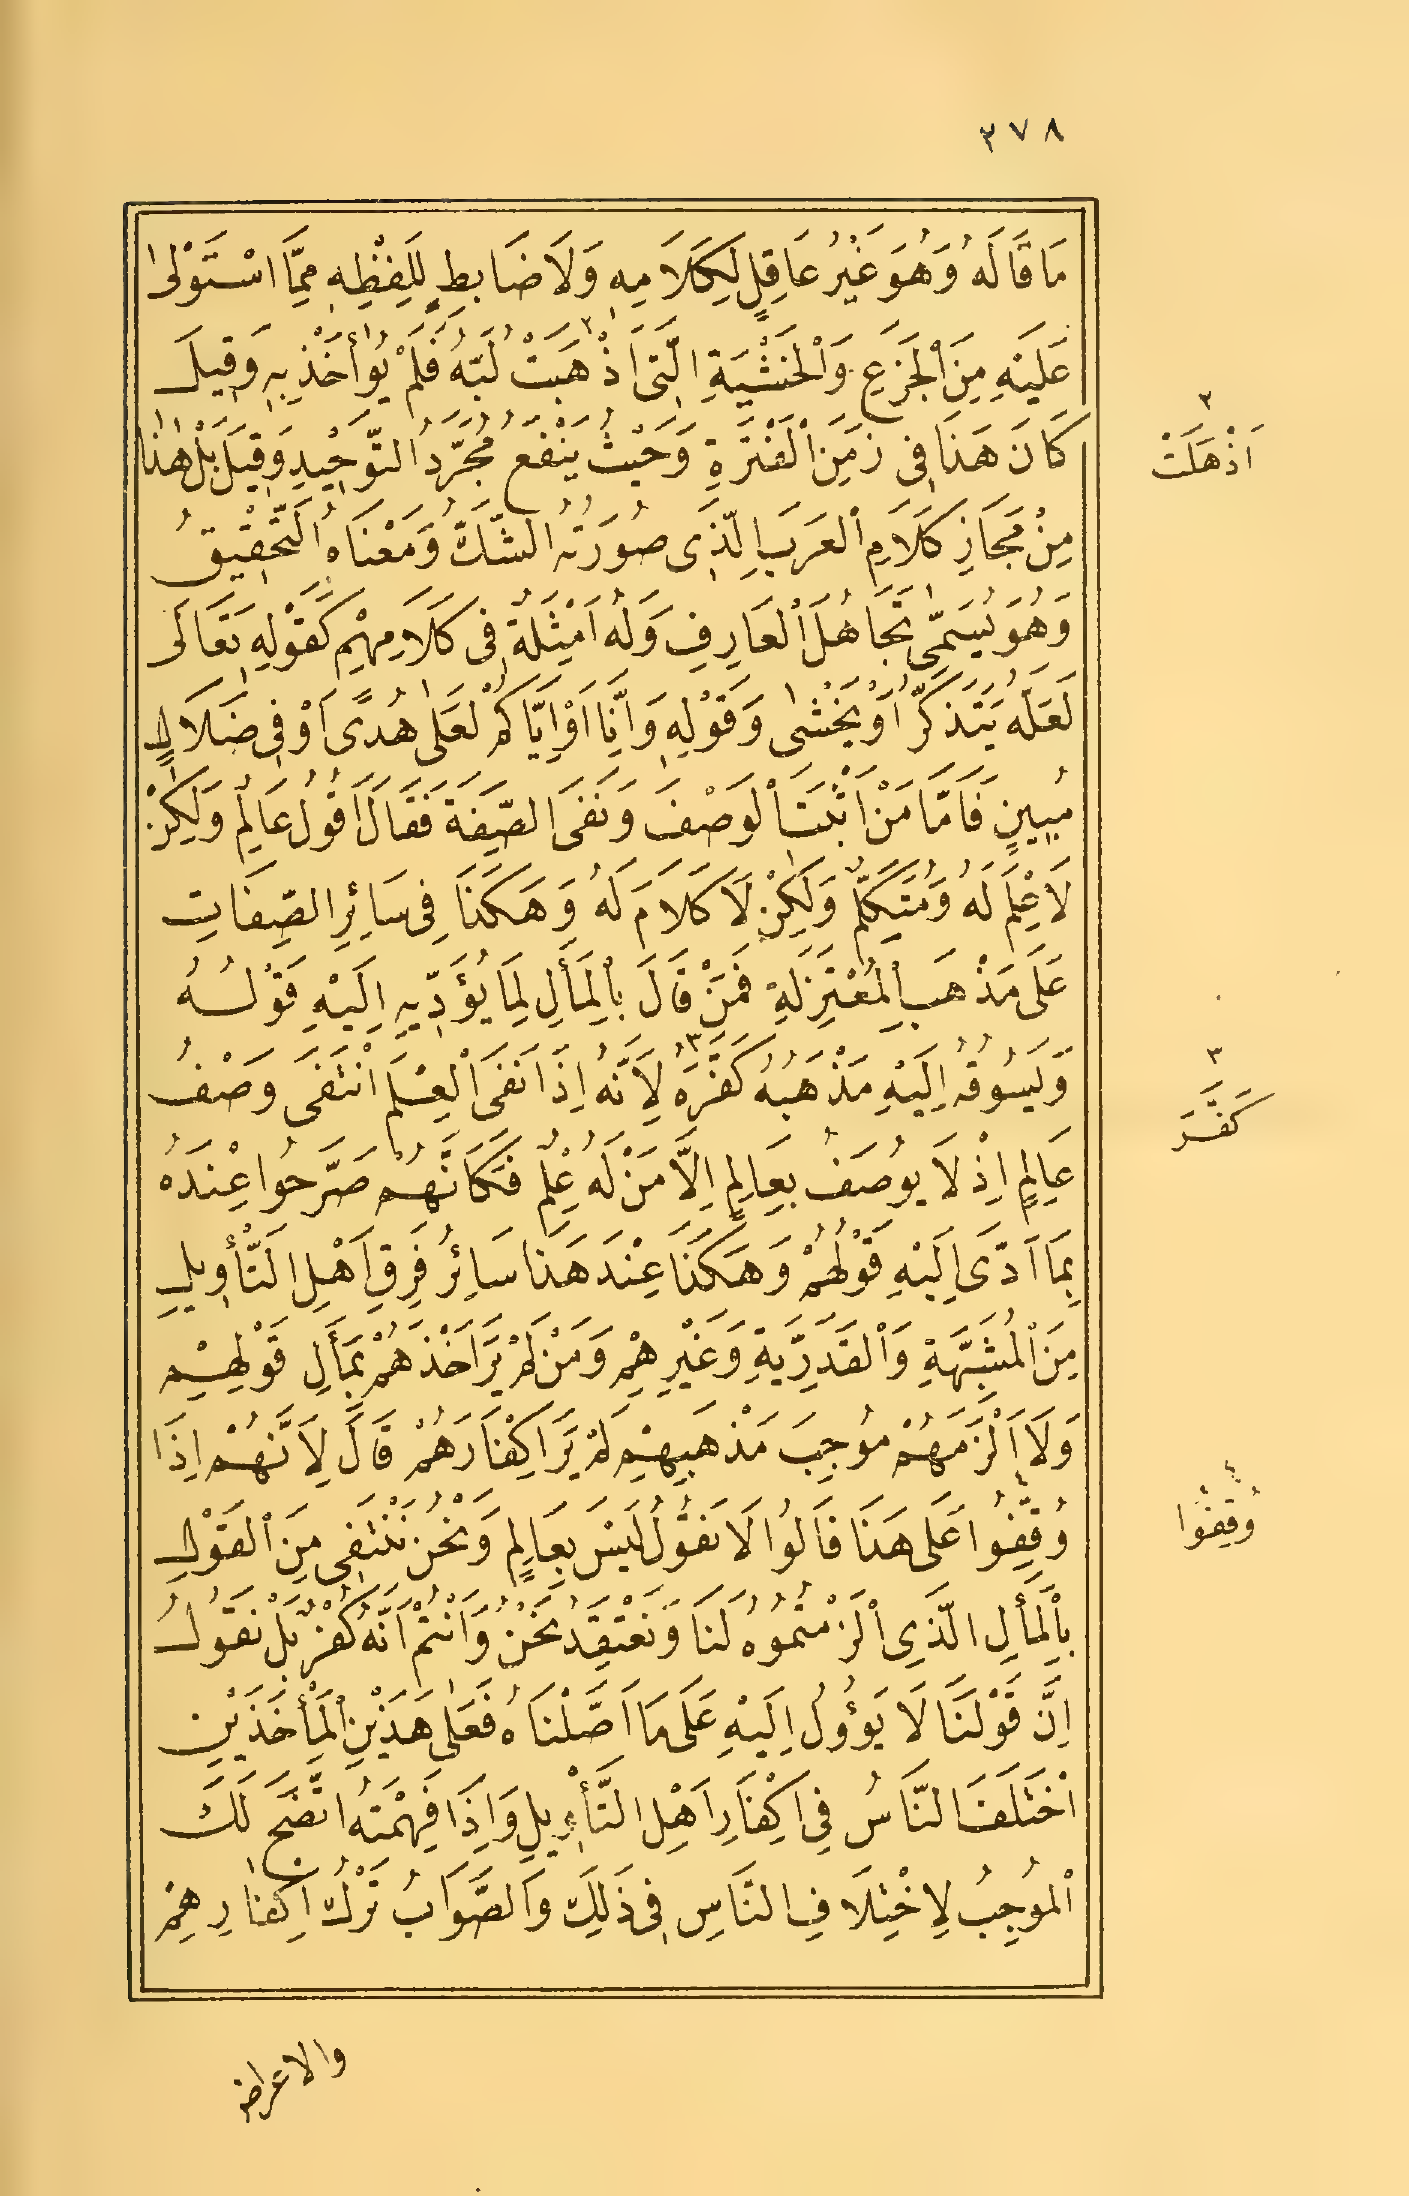 ٢٧٨
مَا قَالَهُ وَهُوَ غَيْرُ عَاقِلٍ لِكَلَامِهِ وَلَا ضَابِطٍ لِلَفْظِهِ مِمَّا اسْتَوْلَى
عَلَيْهِ مِنَ الْجَزَعِ وَالْخَشْيَةِ الَّتِى اَذْهَبَتْ لُبَّهُ فَلَمْ يُؤاَخَذْ بِهِ وَقِيلَ
كَانَ هَذَا فِى زَمَنِ الْفَتْرَةِ وَحَيْثُ يَنْفَعُ مُجَرَّدُ التَّوْحِيْدِ وَقِيلَ بَلْ هٰذَا
مِنْ مَجَازِ كَلَامِ الْعَرَبِ الَّذِى صُورَتُهُ الشَّكُّ وَمَعْنَاهُ التَّحْقِيْقُ
وَهُوَ يُسَمَّى تَجَاهُلَ الْعَارِفِ وَلَهُ اَمْثِلَةٌ فِى كَلَامِهِمْ كَقَوْلِهِ تَعَالَى
لَعَلَّهُ يَتَذَكَّرُ اَوْ يَخْشٰى وَقَوْلِهِ وَاِنَّا اَوْ اِيَّاكُمْ لَعَلٰى هُدًى اَوْ فِى ضَلَالٍ
مُبِينٍ فَاَمَّا مَنْ اَثْبَتَ الْوَصْفَ وَنَفَى الصِّفَةَ فَقَالَ اَقُولُ عَالِمٌ وَلٰكِنْ
لَا عِلْمَ لَهُ وَمُتَكَلِّمٌ وَلٰكِنْ لَا كَلَامَ لَهُ وَهَكَذَا فِى سَائِرِ الصِّفَاتِ
عَلَى مَذْهَبِ الْمُعْتَزِلَةِ فَمَنْ قَالَ بِالْمَأَلِ لِمَا يُؤَدِّيهِ اِلَيْهِ قَوْلُهُ
وَيَسُوقُهُ اِلَيْهِ مَذْهَبُهُ كَفَّرَهُ لِاَنَّهُ اِذَا نَفَى الْعِلْمَ انْتَفَى وَصْفُ
عَالِمٍ اِذْ لَا يُوصَفُ بِعَالِمٍ اِلَّا مَنْ لَهُ عِلْمٌ فَكَاَنَّهُمْ صَرَّحُوا عِنْدَهُ
بِمَا اَدَّى اِلَيْهِ قَوْلُهُمْ وَهَكَذَا عِنْدَ هَذَا سَائِرُ فِرَقِ اَهْلِ التَّأْوِيلِ
مِنَ الْمُشَبِّهَةِ وَالْقَدَرِيَّةِ وَغَيْرِهِمْ وَمَنْ لَمْ يَرَ اَخْذَهُمْ بِمَأَلِ قَوْلِهِمْ
وَلَا اَلْزَمَهُمْ مُوجِبَ مَذْهَبِهِمْ لَمْ يَرَ اِكْفَارَهُمْ قَالَ لِاَنَّهُمْ اِذَا
وُقِّفُوا عَلَى هَذَا قَالُوا لَا نَقُولُ لَيْسَ بِعَالِمٍ وَنَحْنُ نَنْتَفِى مِنَ الْقَوْلِ
بِالْمَأَلِ الَّذِى اَلْزَمْتُمُوهُ لَنَا وَنَعْتَقِدُ نَحْنُ وَاَنْتُمْ اَنَّهُ كُفْرٌ بَلْ نَقُولُ
اِنَّ قَوْلَنَا لَا يَؤُولُ اِلَيْهِ عَلَى مَا اَصَّلْنَاهُ فَعَلٰى هَذَيْنِ الْمَأْخَذَيْنِ
اخْتَلَفَ النَّاسُ فِى اِكْفَارِ اَهْلِ التَّأْوِيلِ وَاِذَا فَهِمْتَهُ اتَّضَحَ لَكَ
الْمُوجِبُ لِاِخْتِلَافِ النَّاسِ فِى ذَلِكَ وَالصَّوَابُ تَرْكُ اِكْفَارِهِمْ
والاعراض
٣
اَذْهَلَتْ
٣
كَفَّرَ
٤
وُقِفُوا